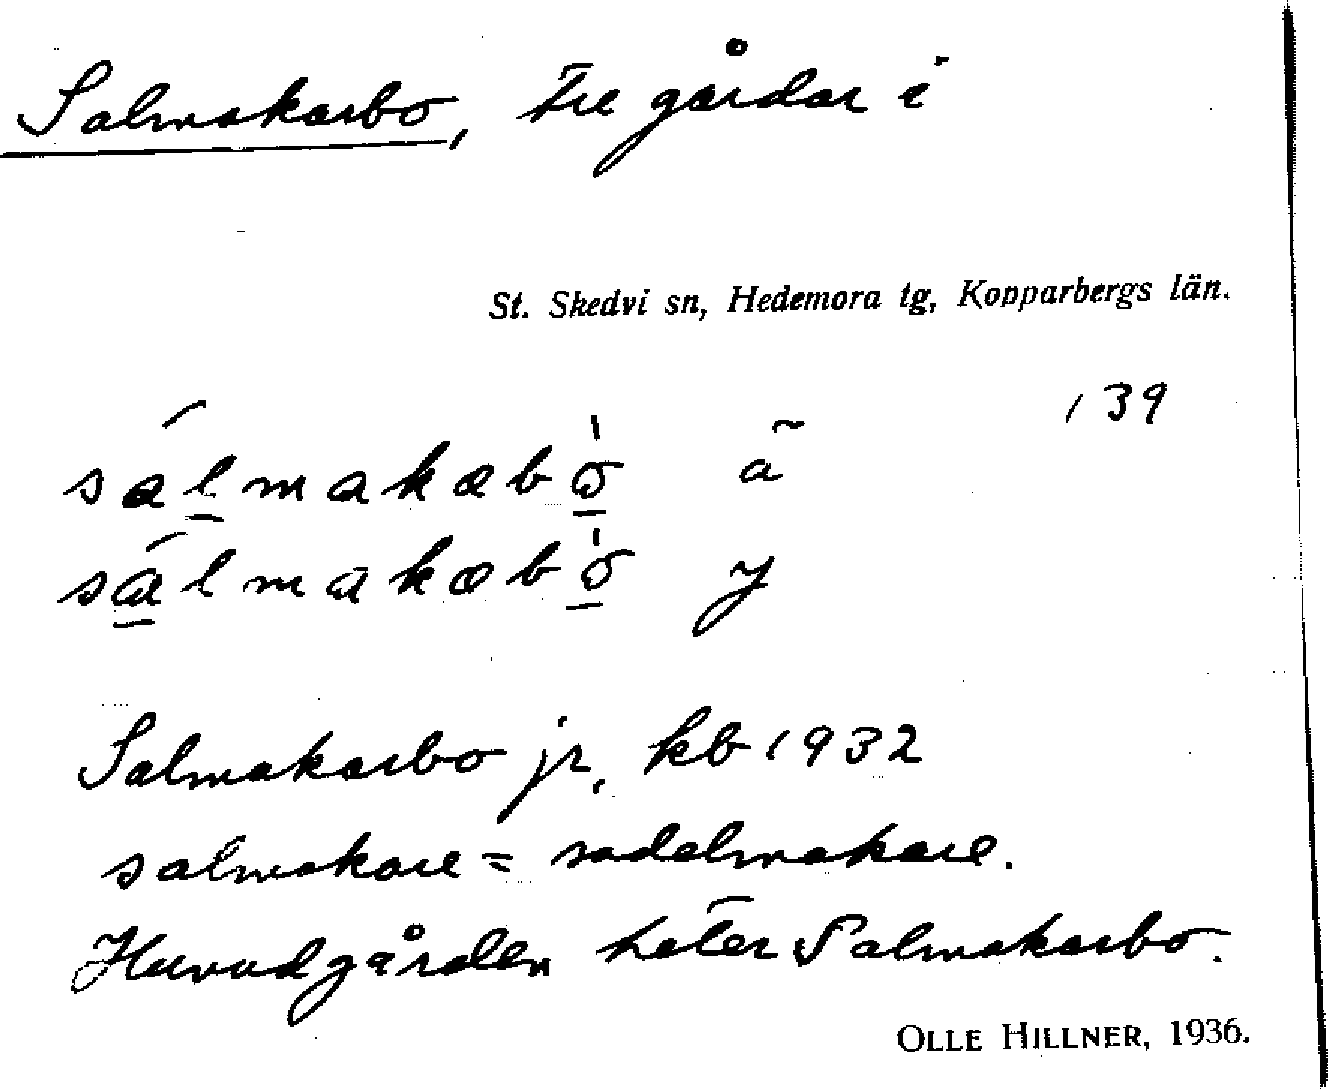 Salmakarbo, tre gårdar i
St. Skedvi sn, Hedemora tg, Kopparbergs län.
139
salmakæbo ä
salmakæbo y
Salmakarbo jr, kb 1932
salmakare = sadelmakare.
Huvudgården heter Salmakarbo.
OLLE HILLNER, 1936.